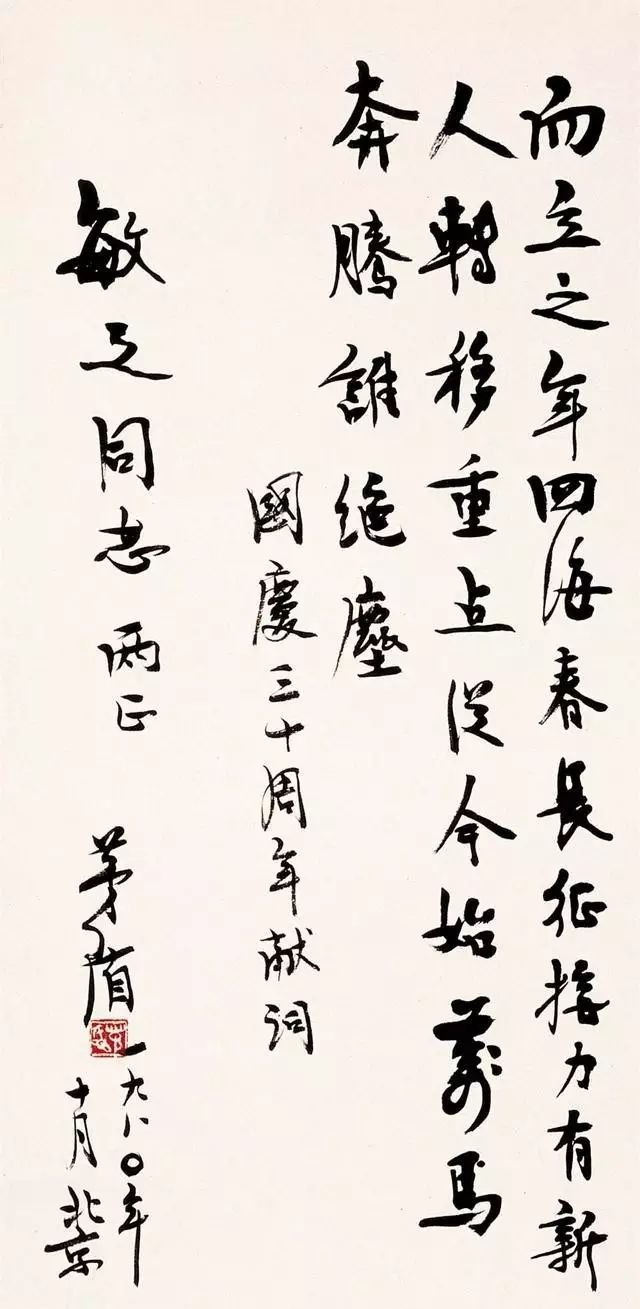 而立之年四海春長征接力有新
人轉移重点從今始萬馬
奔騰誰絶塵
國慶三十周年献词
敏之同志両正
茅盾
一九八〇年
十月北京